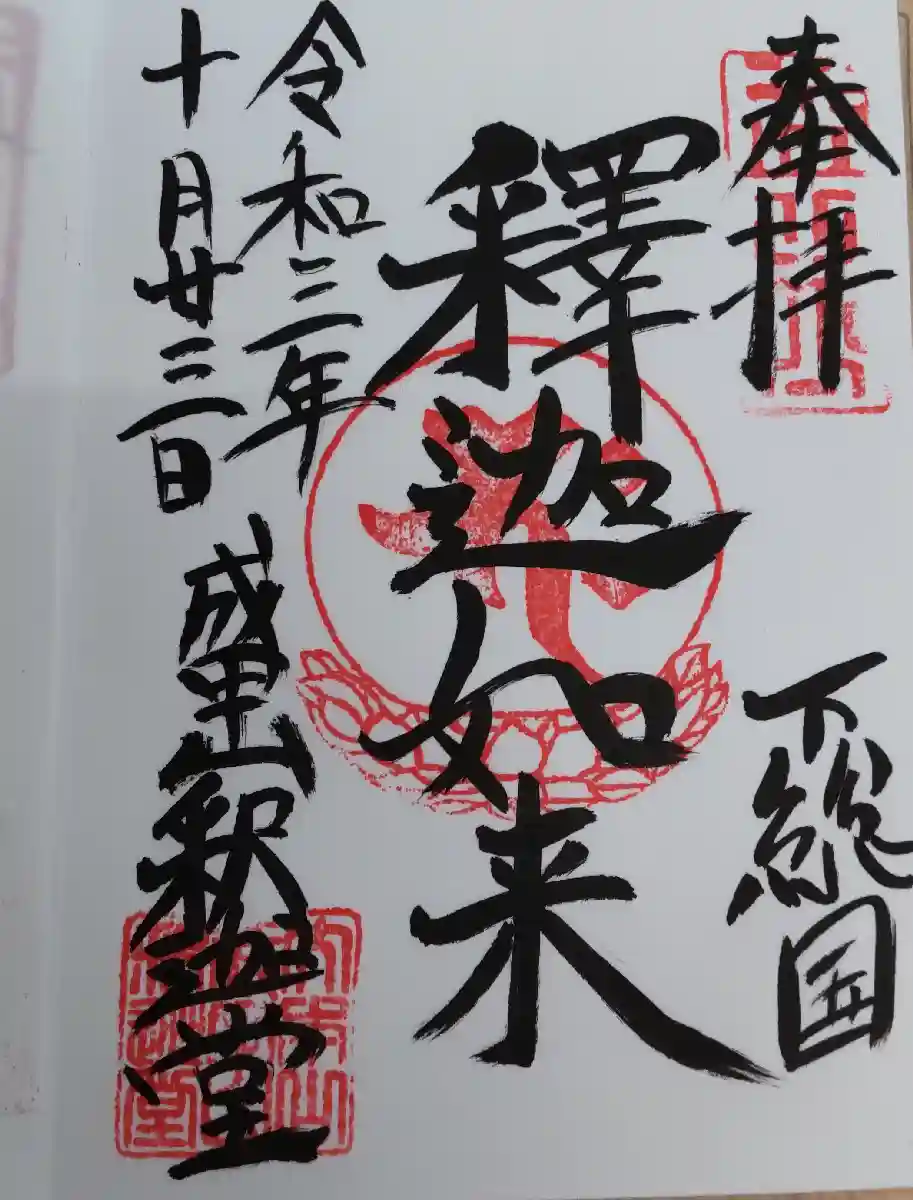 奉拝
下総国
釋迦如来
令和三年
十月廿三日
成田山釈迦堂